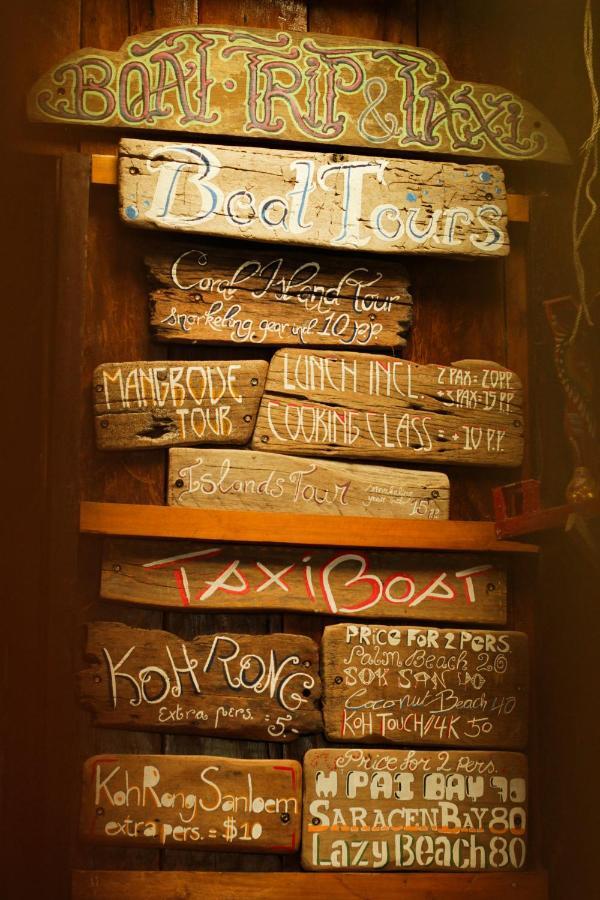 BOAT·TRIP & TAXI
Boat Tours
Coral Island Tour
snorkeling gear incl. 10 pp.
MANGROVE
TOUR
LUNCH INCL. 2 PAX = 20PP
+3 PAX = 15 P.P.
COOKING CLASS = +10 P.P.
Islands Tour snorkeling
gear incl. 15 pp
TAXiBOAT
KOH RONG
Extra pers. = 5.-
PRiCE FOR 2 PERS.
Palm Beach 20
SOK SAN
Coconut Beach 40
KOH TOUCH/4K 50
KohRong Sanloem
extra pers. = $10
Price for 2 pers.
M PAI BAY 70
SARACEN BAY 80
Lazy Beach 80